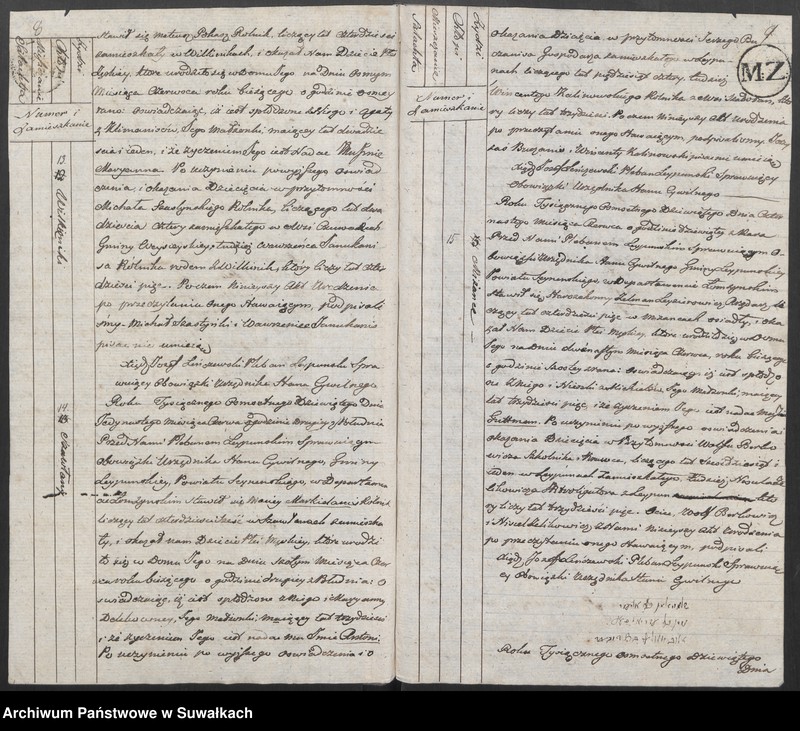 8
Żydzi
Obcy
Mieszkanie
Szlachta
Numer i
Zamieszkanie
stawił się Mateusz Rolnik, liczący lat
zamieszkały w Wiłkinkach, i okazał Nam Dziecie Płci
żeńskiey, które urodziło się w Domu Jego na Dniu ósmym
Miesiąca Czerwca, roku bieżącego o godzinie osmey
zrana: oświadczaiąc, iż iest spłodzone z Niego i Agaty
z Klimaniców, Jego Małżonki, maiącey lat dwadzie
ścia i ieden, i że życzeniem Jego iest Nadać Mu Imie
Maryanna. Po uczynieniu powyższego oświad
czenia, i okazania Dziecięcia w przytomności
Michała Szastyńskiego Rolnika, liczącego lat dwa
dzieścia cztery zamieszkałego w Wsi
Gminy tudzież Wawrzeńca Janukani
sa Rolnika rodem z Wiłkinik, który liczy lat czter
dzieści pięć. Poczem Ninieyszy Akt Urodzenia
po przeczytaniu onego Stawaiącym, podpisali
śmy. Michał Szastyński i Wawrzeniec Janukanis
pisać nie umieią
Xiądz Józef Pleban Leypunski Spra
wuiący Obowiązki Urzędnika Stanu Cywilnego
13. Wiłkiniki
Roku Tysiącznego Osmsetnego Dziewiątego Dnia
Jedynastego Miesiąca Czerwca o godzinie Drugiey z Południa
Przed Nami Plebanem Leypunskim Sprawuiącym
Obowiązki Urzędnika Stanu Cywilnego, Gminy
Leypunskiey, Powiatu Seynenskiego, w Departamen
cie Łomżyńskim stawił się Maciey Rolnik
liczący lat czterdzieści sześć w Szawłanach zamieszka
ły, i okazał nam Dziecie Płci Męskiey, które urodzi
ło się w Domu Jego na Dniu szóstym Miesiąca Czer
wca roku bieżącego o godzinie drugiey z Południa: O
świadczaiąc, iż iest spłodzone z Niego i Maryanny
Jego Małżonki, maiącey lat trzydzieści
i że życzeniem Jego iest nadać mu Imie Antoni.
Po uczynieniu powyższego oświadczenia i o
14. Szawłany
9
MZ
Żydzi
Obcy
Mieszkanie
Szlachta
Numer i
Zamieszkanie
okazania Dziecięcia, w przytomności Jerzego Bu
Gospodarza zamieszkałego w Leypu
nach liczącego lat pięćdziesiąt cztery, tudzież
Wincentego Kalinowskiego Rolnika z Wsi Szadzian, któ
ry liczy lat trzydzieści. Poczem Ninieyszy Akt Urodzenia
po przeczytaniu onego Stawaiącym, podpisaliśmy.
i Wincenty Kalinowski pisać nie umieią
Xiądz Józef Pleban Leypunski Sprawuiący
Obowiązki Urzędnika Stanu Cywilnego
Roku Tysiącznego Osmsetnego Dziewiątego Dnia Czter
nastego Miesiąca Czerwca o godzinie dziewiątey z Rana
Przed Nami Plebanem Leypunskim Sprawuiącym O
bowiązki Urzędnika Stanu Cywilnego Gminy Leypunskiey
Powiatu Seynenskiego, w Departamencie Łomżyńskim
Stawił się Starozakonny Zelman
czący lat czterdzieści pięć w Mizańcach osiadły, i oka
zał Nam Dziecie Płci Męskiey, które urodziło się w Domu
Jego na Dniu dwónastym Miesiąca Czerwca, roku bieżącego
o godzinie szóstey zrana: oświadczaiąc, iż iest spłodzo
ne z Niego i Jego Małżonki, maiącey
lat trzydzieści pięć, i że życzeniem Jego iest nadać mu Imie
Guttman. Po uczynieniu powyższego oświadczenia i
okazania Dziecięcia w Przytomności Wolfa Berko
wicza Szkolnika Krawca, liczącego lat sześćdziesiąt i
ieden w Leypunach Zamieszkałego. Tudzież
z Leypun któ
ry liczy lat trzydzieści pięć. Wolf Berkowicz
i z Nami Ninieyszy Akt Urodzenia
po przeczytaniu onego Stawaiącym, podpisali
Xiądz Józef Pleban Leypunski Sprawuią
cy Obowiązki Urzędnika Stanu Cywilnego
15 Mizańce
Roku Tysiącznego Osmsetnego Dziewiątego
Dnia
Archiwum Państwowe w Suwałkach